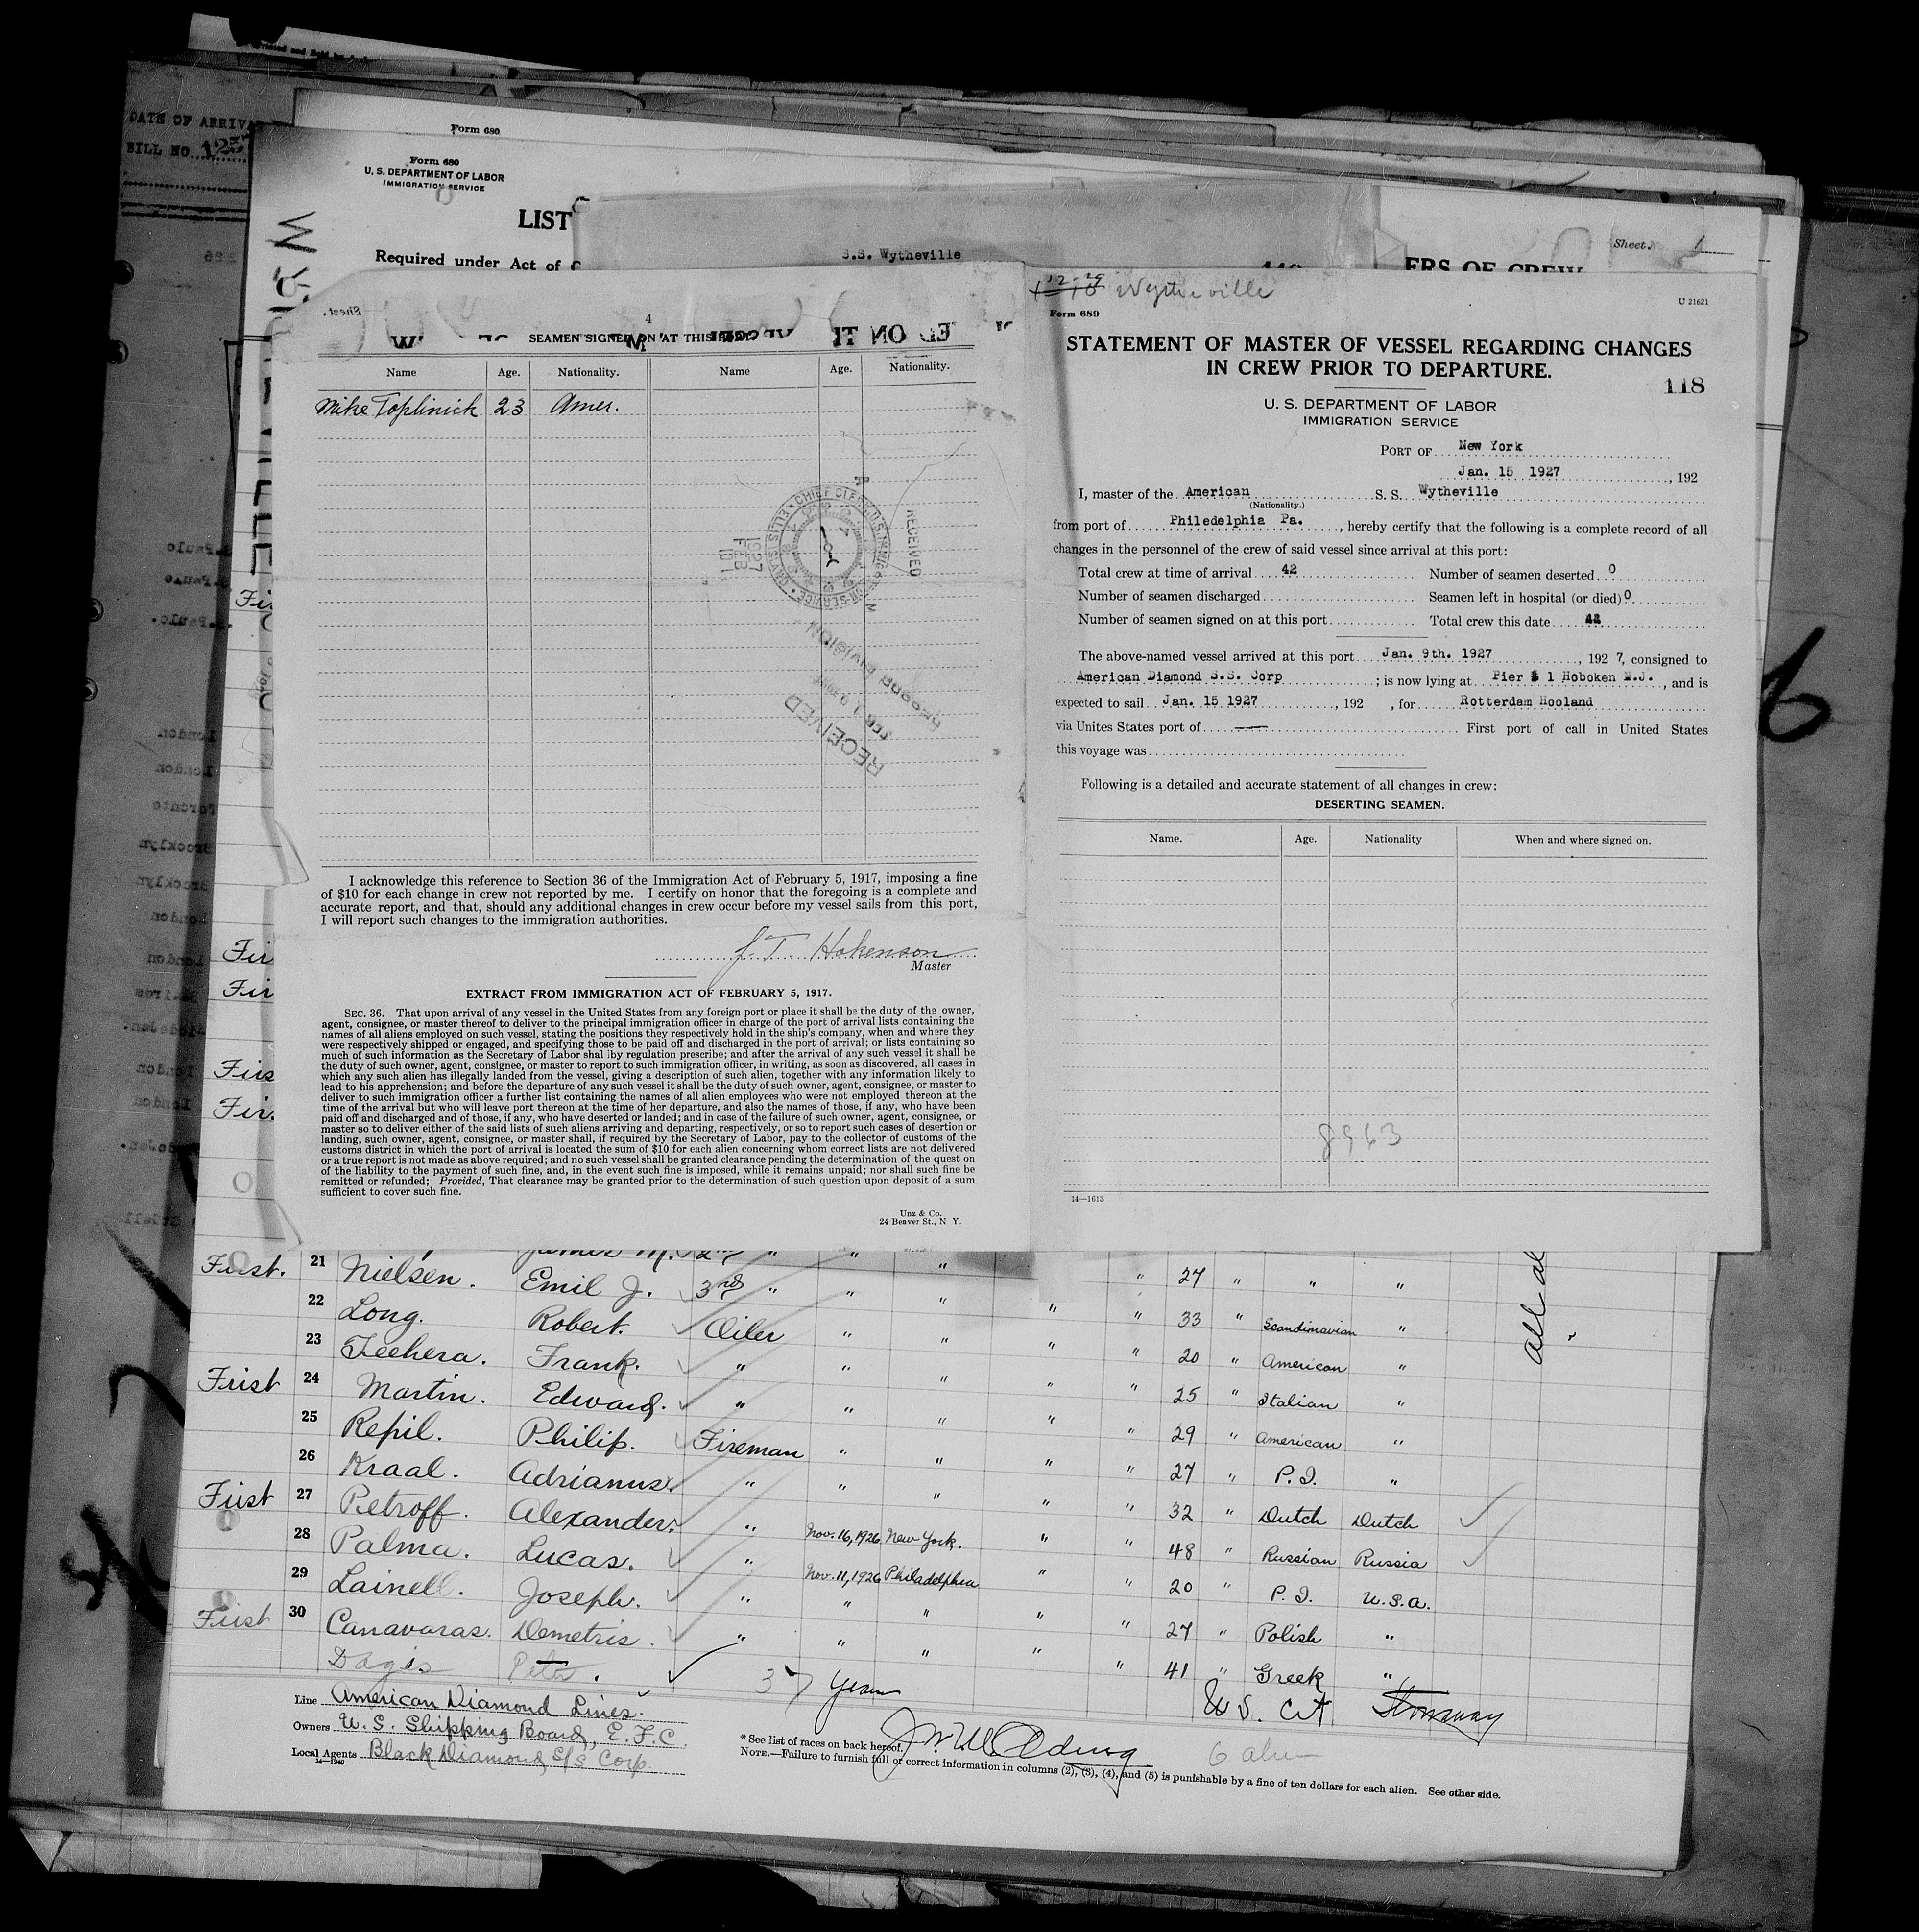 DATE OF ARRIVAL
BILL NO. 125
Form 680
Form 680
U. S. DEPARTMENT OF LABOR
IMMIGRATION SERVICE
LIST
Required under Act of
S.S. Wytheville
Sheet 1
ERS OF CREW
4
SEAMEN SIGNED ON AT THIS
Name Age. Nationality. Name Age. Nationality.
Mike Toplinick 23 Amer.
CHIEF CLERK U.S. IMMIGRATION SERVICE
RECEIVED
1927 FEB
RECEIVED
I acknowledge this reference to Section 36 of the Immigration Act of February 5, 1917, imposing a fine
of $10 for each change in crew not reported by me. I certify on honor that the foregoing is a complete and
accurate report, and that, should any additional changes in crew occur before my vessel sails from this port,
I will report such changes to the immigration authorities.
J. T. Hokenson
Master
EXTRACT FROM IMMIGRATION ACT OF FEBRUARY 5, 1917.
SEC. 36. That upon arrival of any vessel in the United States from any foreign port or place it shall be the duty of the owner,
agent, consignee, or master thereof to deliver to the principal immigration officer in charge of the port of arrival lists containing the
names of all aliens employed on such vessel, stating the positions they respectively hold in the ship's company, when and where they
were respectively shipped or engaged, and specifying those to be paid off and discharged in the port of arrival; or lists containing so
much of such information as the Secretary of Labor shal lby regulation prescribe; and after the arrival of any such vessel it shall be
the duty of such owner, agent, consignee, or master to report to such immigration officer, in writing, as soon as discovered, all cases in
which any such alien has illegally landed from the vessel, giving a description of such alien, together with any information likely to
lead to his apprehension; and before the departure of any such vessel it shall be the duty of such owner, agent, consignee, or master to
deliver to such immigration officer a further list containing the names of all alien employees who were not employed thereon at the
time of the arrival but who will leave port thereon at the time of her departure, and also the names of those, if any, who have been
paid off and discharged and of those, if any, who have deserted or landed; and in case of the failure of such owner, agent, consignee, or
master so to deliver either of the said lists of such aliens arriving and departing, respectively, or so to report such cases of desertion or
landing, such owner, agent, consignee, or master shall, if required by the Secretary of Labor, pay to the collector of customs of the
customs district in which the port of arrival is located the sum of $10 for each alien concerning whom correct lists are not delivered
or a true report is not made as above required; and no such vessel shall be granted clearance pending the determination of the quest on
of the liability to the payment of such fine, and, in the event such fine is imposed, while it remains unpaid; nor shall such fine be
remitted or refunded; Provided, That clearance may be granted prior to the determination of such question upon deposit of a sum
sufficient to cover such fine.
Unz & Co.
24 Beaver St., N Y.
Wytheville
U 21621
Form 689
STATEMENT OF MASTER OF VESSEL REGARDING CHANGES
IN CREW PRIOR TO DEPARTURE.
118
U. S. DEPARTMENT OF LABOR
IMMIGRATION SERVICE
PORT OF New York
Jan. 15 1927, 192
I, master of the American S. S. Wytheville
(Nationality.)
from port of Philedelphia Pa., hereby certify that the following is a complete record of all
changes in the personnel of the crew of said vessel since arrival at this port:
Total crew at time of arrival 42 Number of seamen deserted 0
Number of seamen discharged Seamen left in hospital (or died) 0
Number of seamen signed on at this port Total crew this date 42
The above-named vessel arrived at this port Jan. 9th. 1927, 192 7, consigned to
American Diamond S.S. Corp; is now lying at Pier 1 Hoboken N.J., and is
expected to sail Jan. 15 1927, 192 , for Rotterdam Hooland
via Unites States port of — First port of call in United States
this voyage was
Following is a detailed and accurate statement of all changes in crew:
DESERTING SEAMEN.
Name. Age. Nationality When and where signed on.
8963
14—1613
First. 21 Nielsen. Emil J. 3rd " " " " 27 " " "
22 Long. Robert. Oiler " " " " 33 " Scandinavian "
23 Feehera. Frank. " " " " " 20 " American "
Frist 24 Martin. Edward. " " " " " 25 " Italian "
25 Repil. Philip. Fireman " " " " 29 " American "
26 Kraal. Adrianus. " " " " " 27 " P.I. "
First 27 Petroff. Alexander. " Nov. 16, 1926 New York. " " 32 " Dutch Dutch
28 Palma. Lucas. " Nov. 11, 1926 Philadelphia " " 48 " Russian Russia
29 Lainell. Joseph. " " " " " 20 " P.I. U.S.A.
First 30 Canavaras. Demetris. " " " " " 27 " Polish "
41 " Greek "
Dagis Peter. 37 Years U.S. Cit Stowaway
all al
Line American Diamond Lines.
Owners U. S. Shipping Board, E. F. C.
Local Agents Black Diamond S/S Corp.
14—1240
* See list of races on back hereof.
NOTE.—Failure to furnish full or correct information in columns (2), (3), (4), and (5) is punishable by a fine of ten dollars for each alien. See other side.